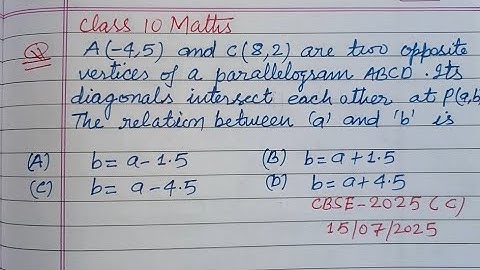 Class 10 Maths
Q A(-4,5) and C(8,2) are two opposite
vertices of a parallelogram ABCD. Its
diagonals intersect each other at P(a,b
The relation between 'a' and 'b' is
(A) b = a - 1.5 (B) b = a + 1.5
(C) b = a - 4.5 (D) b = a + 4.5
CBSE-2025 (C)
15/07/2025